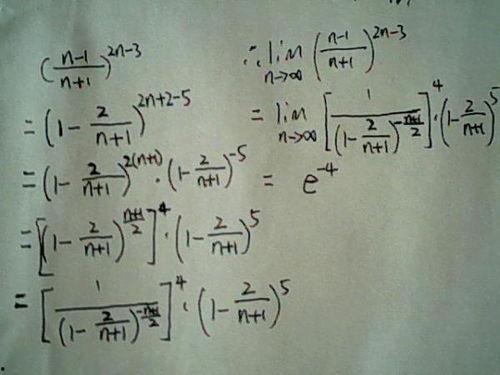 (\frac{n-1}{n+1})^{2n-3}
= (1-\frac{2}{n+1})^{2n+2-5}
= (1-\frac{2}{n+1})^{2(n+1)} \cdot (1-\frac{2}{n+1})^{-5}
= [(1-\frac{2}{n+1})^{\frac{n+1}{2}}]^4 \cdot (1-\frac{2}{n+1})^5
= [\frac{1}{(1-\frac{2}{n+1})^{-\frac{n+1}{2}}}]^4 \cdot (1-\frac{2}{n+1})^5
∴ \lim_{n→∞} (\frac{n-1}{n+1})^{2n-3}
= \lim_{n→∞} [\frac{1}{(1-\frac{2}{n+1})^{-\frac{n+1}{2}}}]^4 \cdot (1-\frac{2}{n+1})^5
= e^{-4}